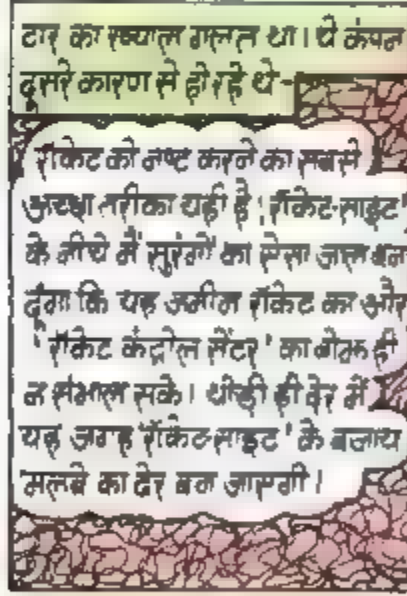 टार का ख्याल गलत था। ये कंपन
दूसरे कारण से हो रहे थे-
रॉकेट को नष्ट करने का सबसे
अच्छा तरीका यही है। 'रॉकेट-साइट'
के नीचे मैं सुरंगों का ऐसा जाल बना
दूंगा कि यह जमीन रॉकेट का और
'रॉकेट कंट्रोल सेंटर' का बोझ ही
न संभाल सके। थोड़ी ही देर में
यह जगह 'रॉकेट-साइट' के बजाय
मलबे का ढेर बन जाएगी।